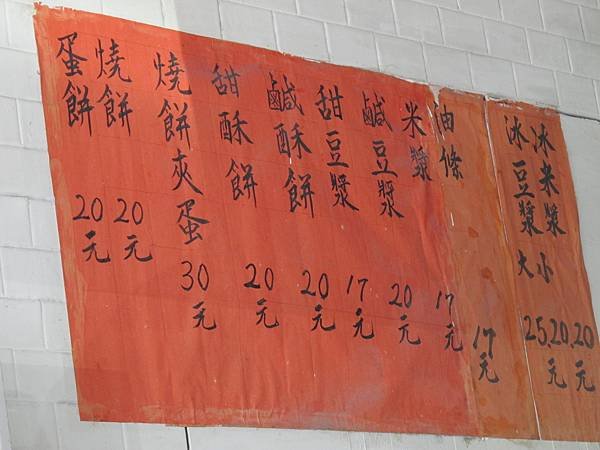 冰米漿小 20元
冰豆漿大 25.20.元
油條 17元
米漿 17元
鹹豆漿 20元
甜豆漿 17元
鹹酥餅 20元
甜酥餅 20元
燒餅夾蛋 30元
燒餅 20元
蛋餅 20元